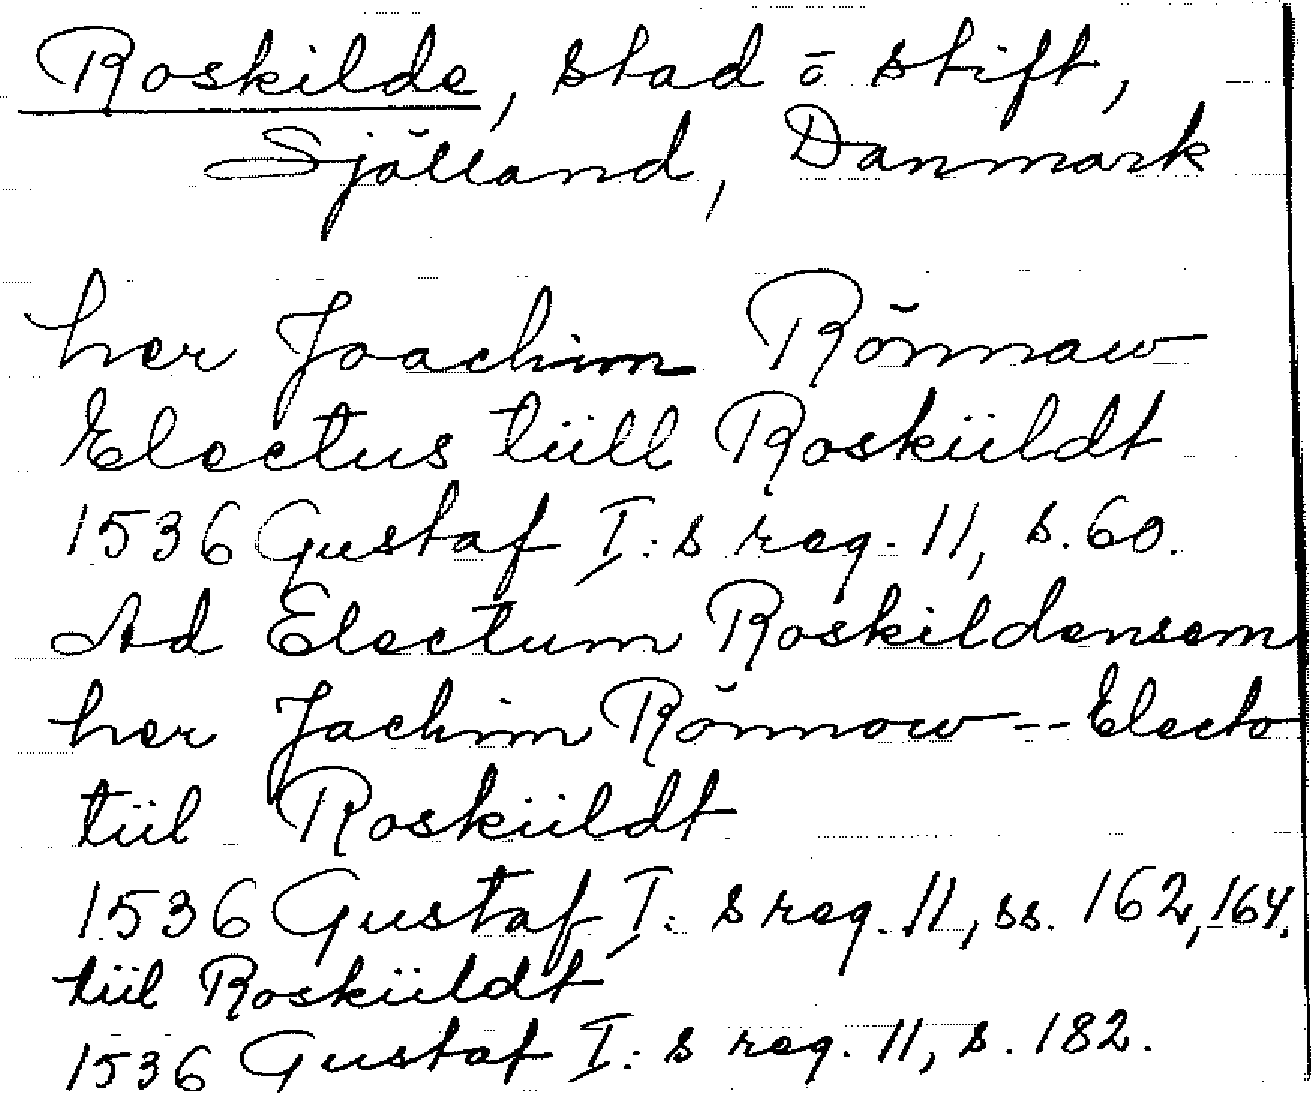 Roskilde, stad o stift,
Själland, Danmark
her Joachim Rönnaw
Electus tiill Roskiildt
1536 Gustaf I:s reg. 11, s. 60.
Ad Electum Roskildensem
her Jachim Rönnow -- Electo
tiil Roskiildt
1536 Gustaf I:s reg. 11, ss. 162, 164.
tiil Roskiildt
1536 Gustaf I:s reg. 11, s. 182.